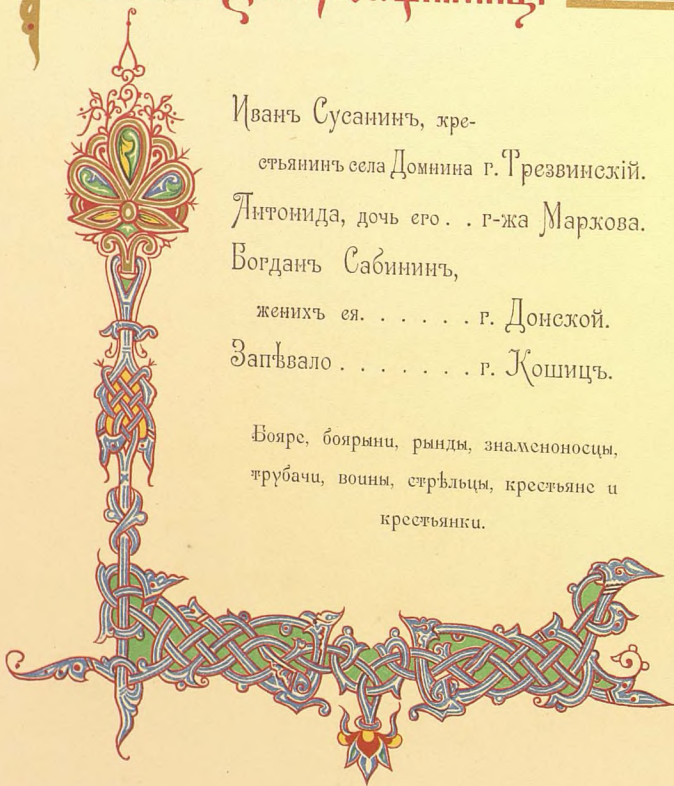 Иванъ Сусанинъ, кре-
стьянинъ села Домнина г. Трезвинскій.
Антонида, дочь его . . г-жа Маркова.
Богданъ Сабининъ,
женихъ ея. . . . . . . г. Донской.
Запѣвало . . . . . . . г. Кошицъ.
Бояре, боярыни, рынды, знаменоносцы,
трубачи, воины, стрѣльцы, крестьяне и
крестьянки.